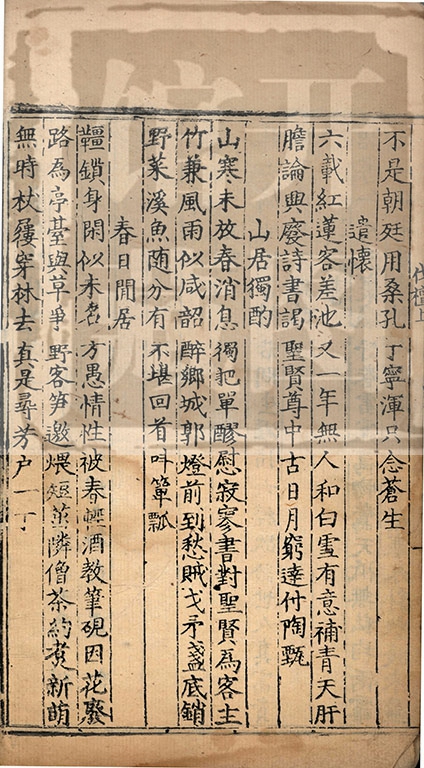 不是朝廷用桑孔丁寧渾只念蒼生
遣懷
六載紅蓮客差池又一年無人和白雪有意補青天肝
膽論興廢詩書謁聖賢尊中古日月窮達付陶甄
山居獨酌
山寒未放春消息獨把單醪慰寂寥書對聖賢為客主
竹兼風雨似咸韶醉鄉城郭燈前到愁賊戈矛盞底銷
野菜溪魚随分有不堪回首叫簞瓢
春日閒居
韁鎖身閒似未名方愚情性被春輕酒教筆硯因花發
路為亭臺與草爭野客笋邀煨短茁隣僧茶約煮新萌
無時杖屨穿林去真是尋芳户一丁